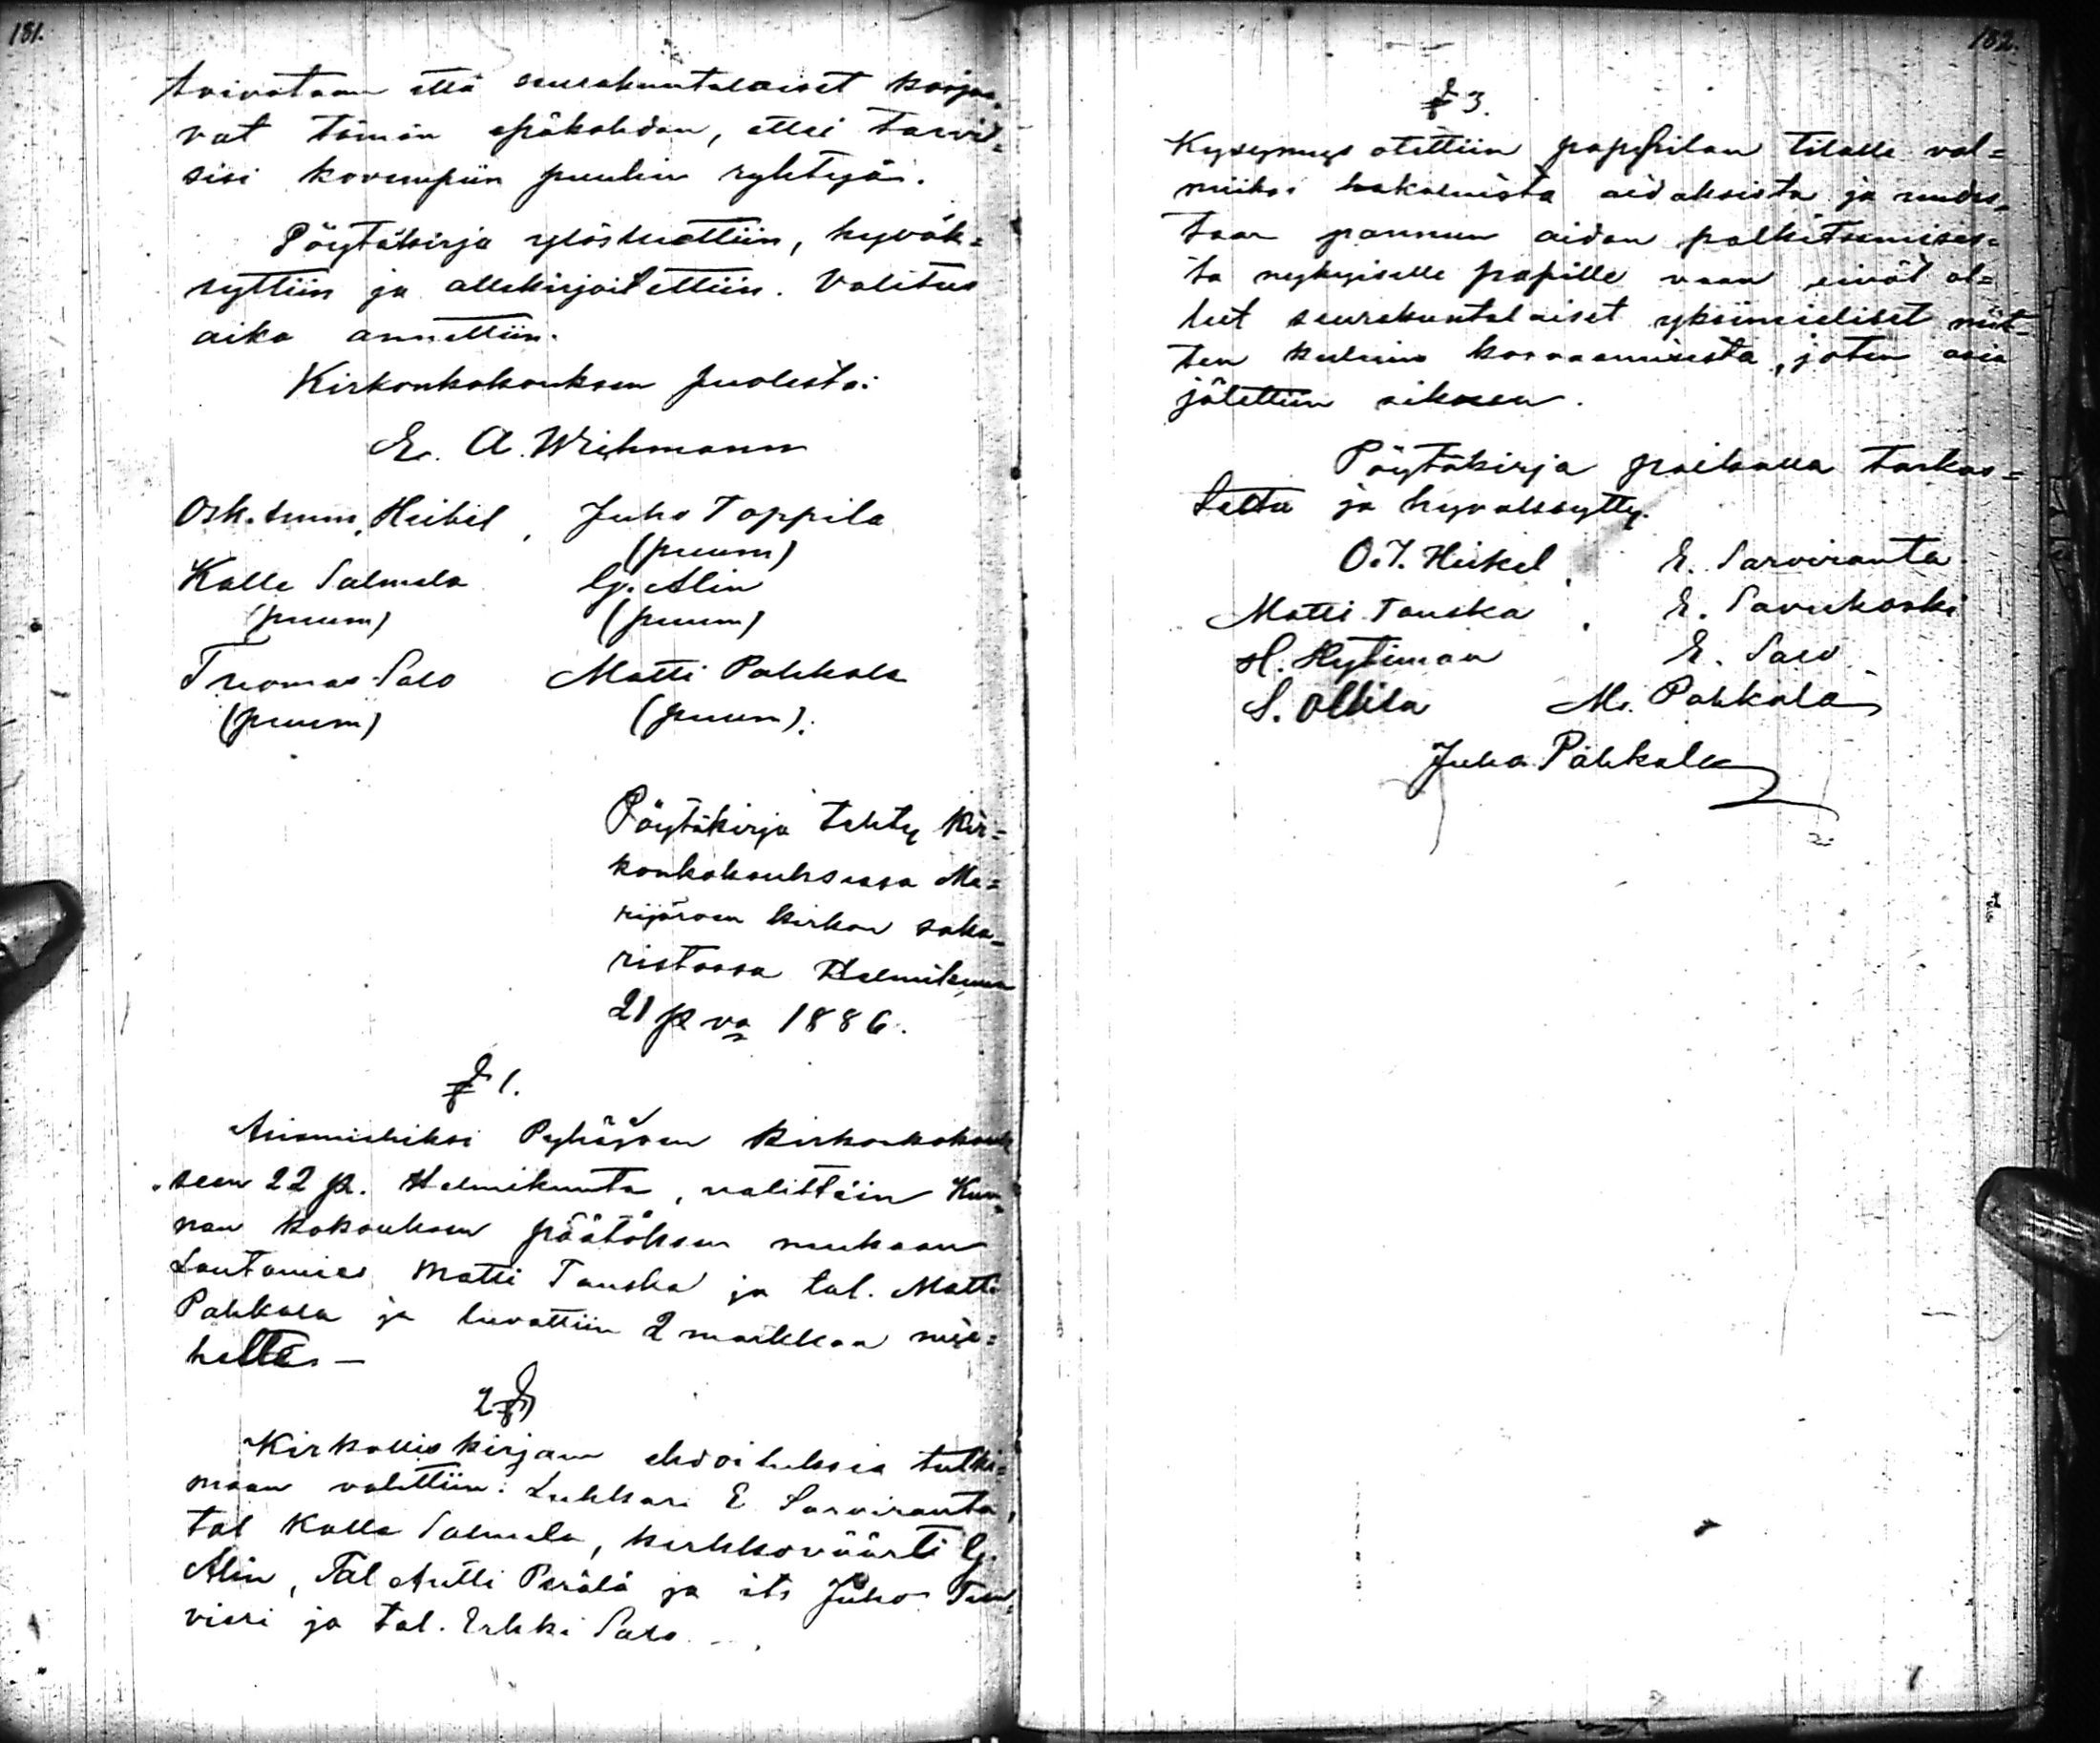 181.
toivotaan että seurakuntalaiset korjaa-
vat tämän epäkohdan, ettei tarvit=
sisi kovempiin puuhin ryhtyä.
Pöytäkirja ylösluettiin, hyväk=
syttiin ja allekirjoitettiin. Valitus
aika annettiin.
Kirkonkokouksen puolesta:
E. A. Wichmann
Osk. Imm. Heikel, Juho Toppila
(puum)
Kalle Salmela G. Alin
(puum) (puum)
Tuomas Salo Matti Pahkala
(puum) (puum).
Pöytäkirja tehty Kir=
konkokouksessa Me=
rijärven kirkon saka-
ristossa Helmikuun
21 p vä 1886.
§ 1.
Asiamiehiksi Pyhäjoen kirkonkokouk
seen 22 p. Helmikuuta, valittiin Kun-
nan kokouksen päätöksen mukaan
Lautamies Matti Tauska ja tal. Matti
Pahkala ja luvattiin 2 markkaa mie=
helle. —
2 §
Kirkolliskirjain ehdoituksia tutki=
maan valittiin: Lukkari E Sarviranta,
tal Kalle Salmela, kirkkoväärti G.
Alin, Tal Antti Perälä ja its Juho
ja tal. Erkki Salo.
182.
§ 3.
Kysymys otettiin pappilan tilalle val=
miiksi hakatuista aidaksista ja uudes-
taan pannun aidan palkitsemises=
ta nykyiselle papille vaan eivät ol=
leet seurakuntalaiset yksimieliset niit-
ten kulujen korvaamisesta, joten asia
jätettiin sikseen.
Pöytäkirja paikalla tarkas=
tettu ja hyväksytty.
O. I. Heikel, E. Sarviranta
Matti Tauska, E. Savukoski
H. Hytinmaa E. Salo
S. Ollila M. Pahkala
Juho Pahkala